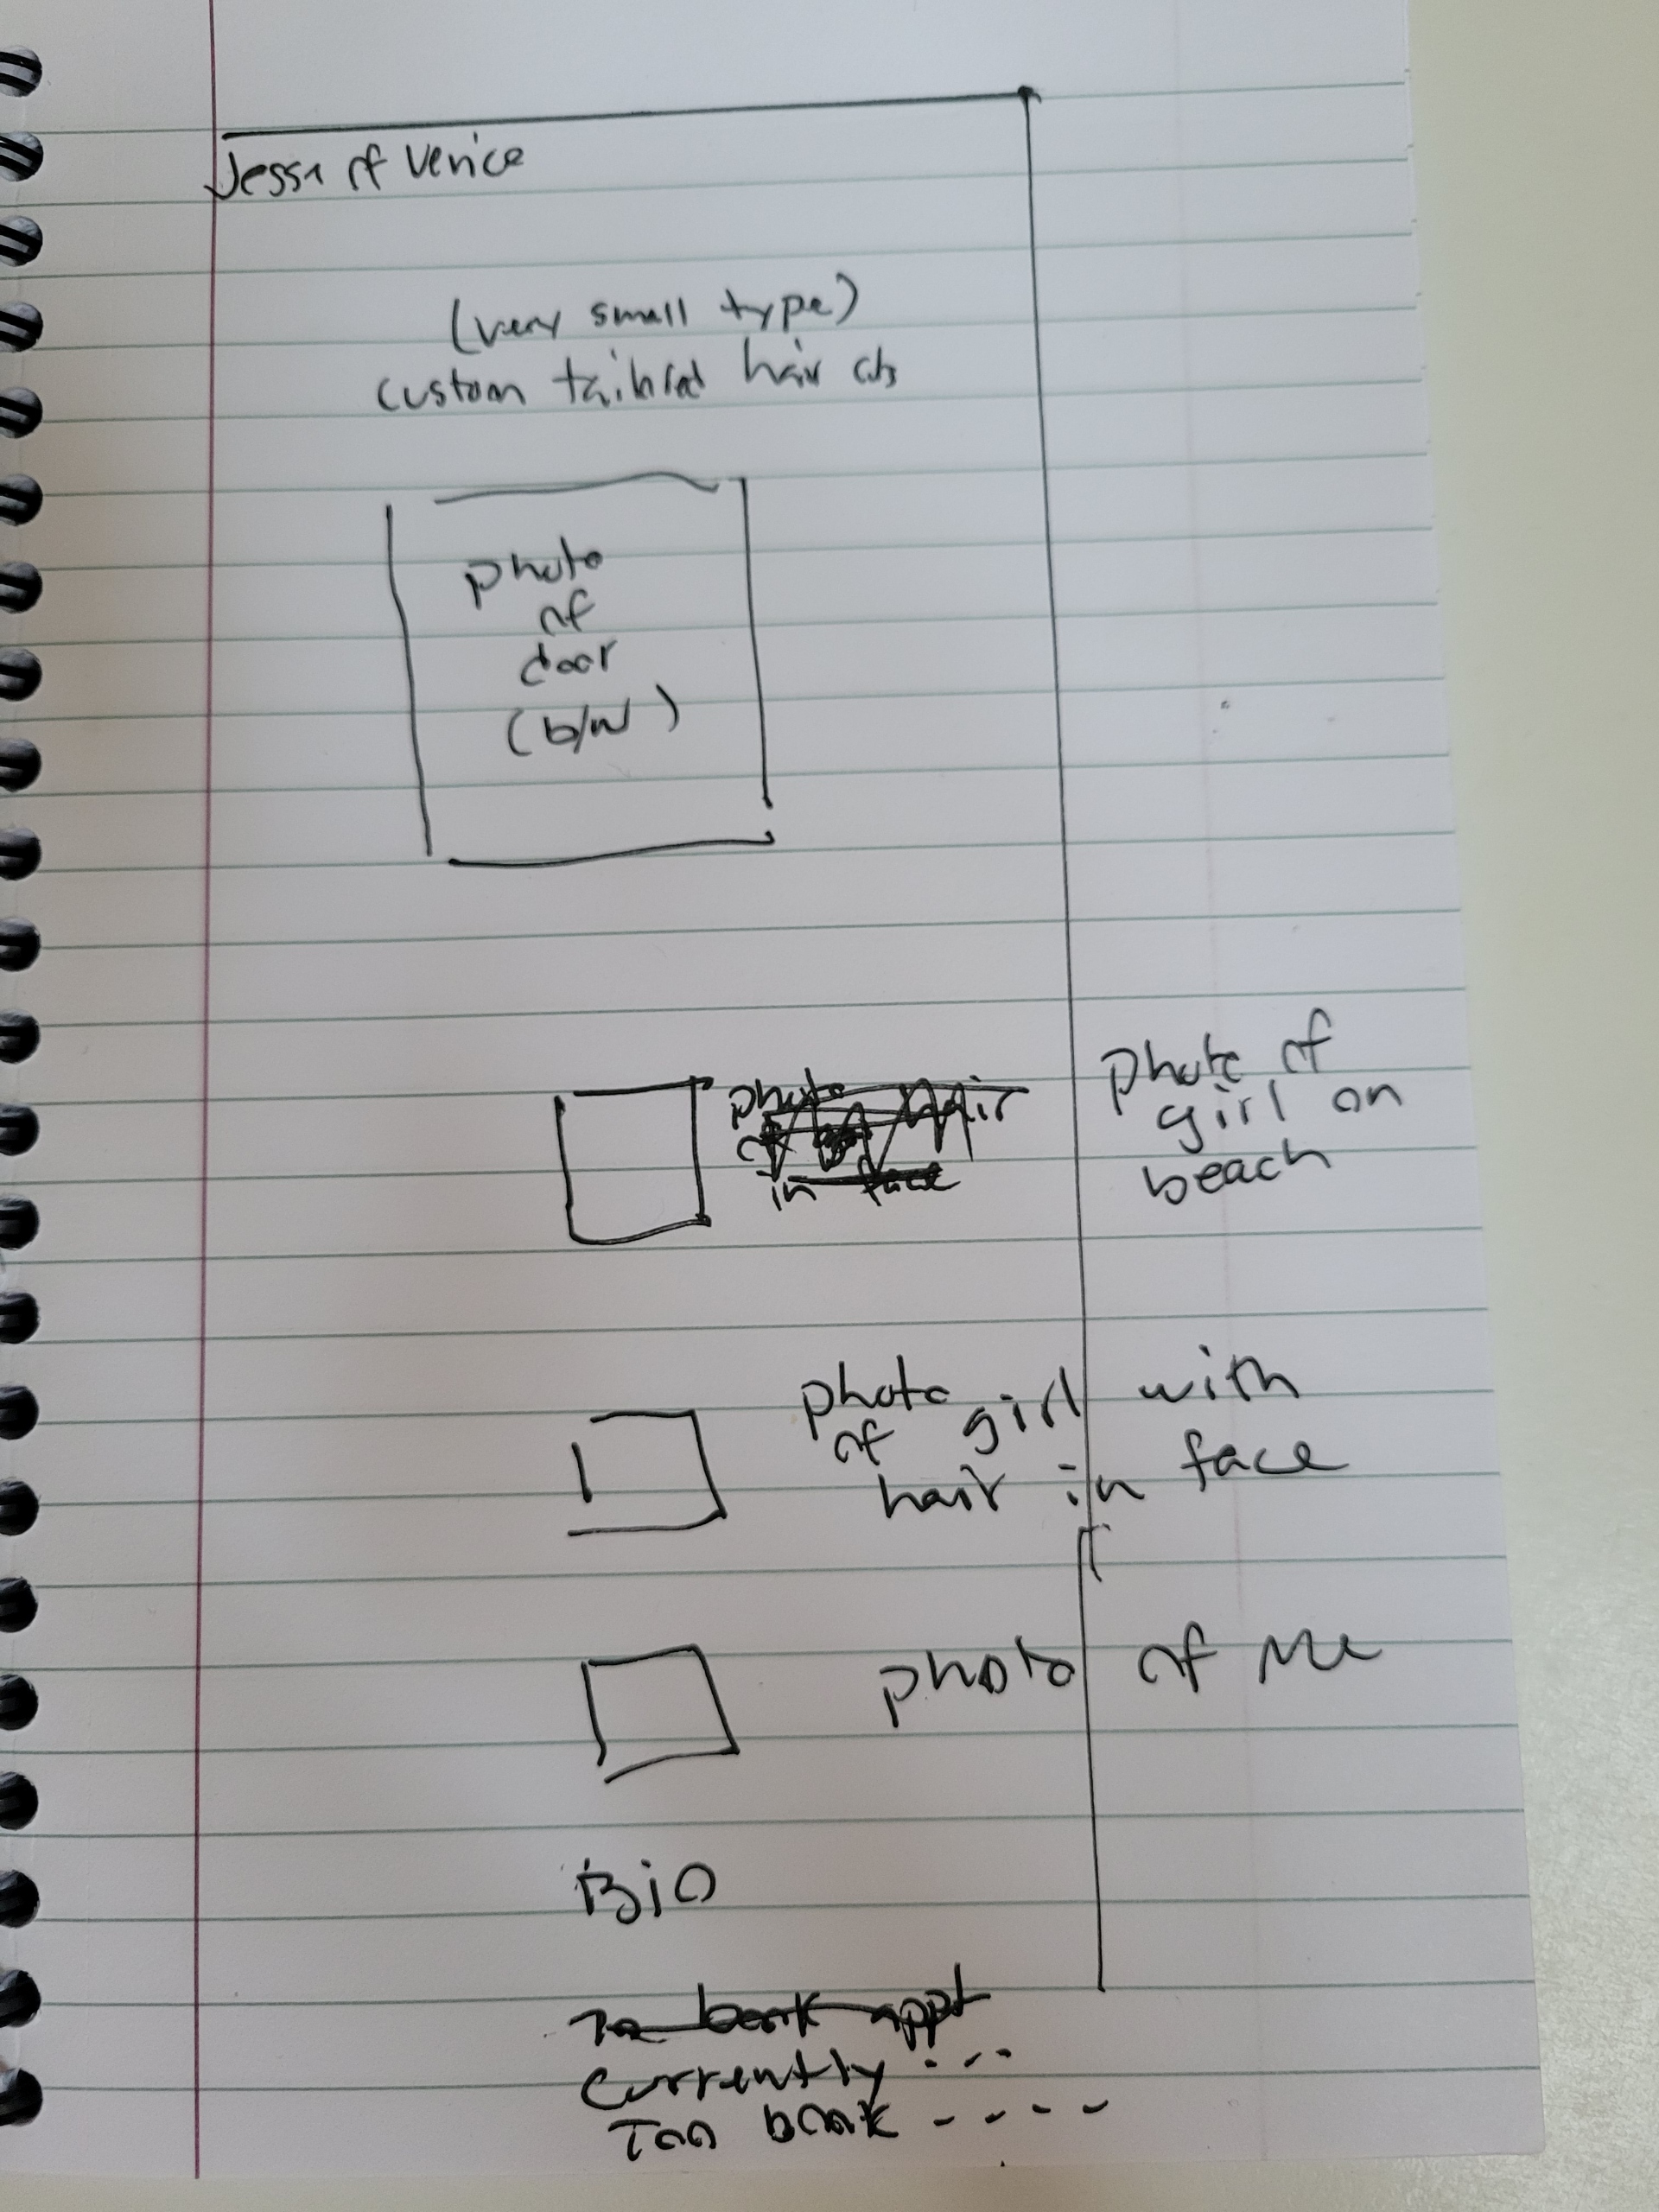 Jessa of Venice
(very small type)
custom tailored hair cuts
photo
of
door
(b/w)
photo hair
in face
photo of
girl on
beach
photo
of girl with
hair in face
photo of me
Bio
To book appt
Currently ...
Too book ----